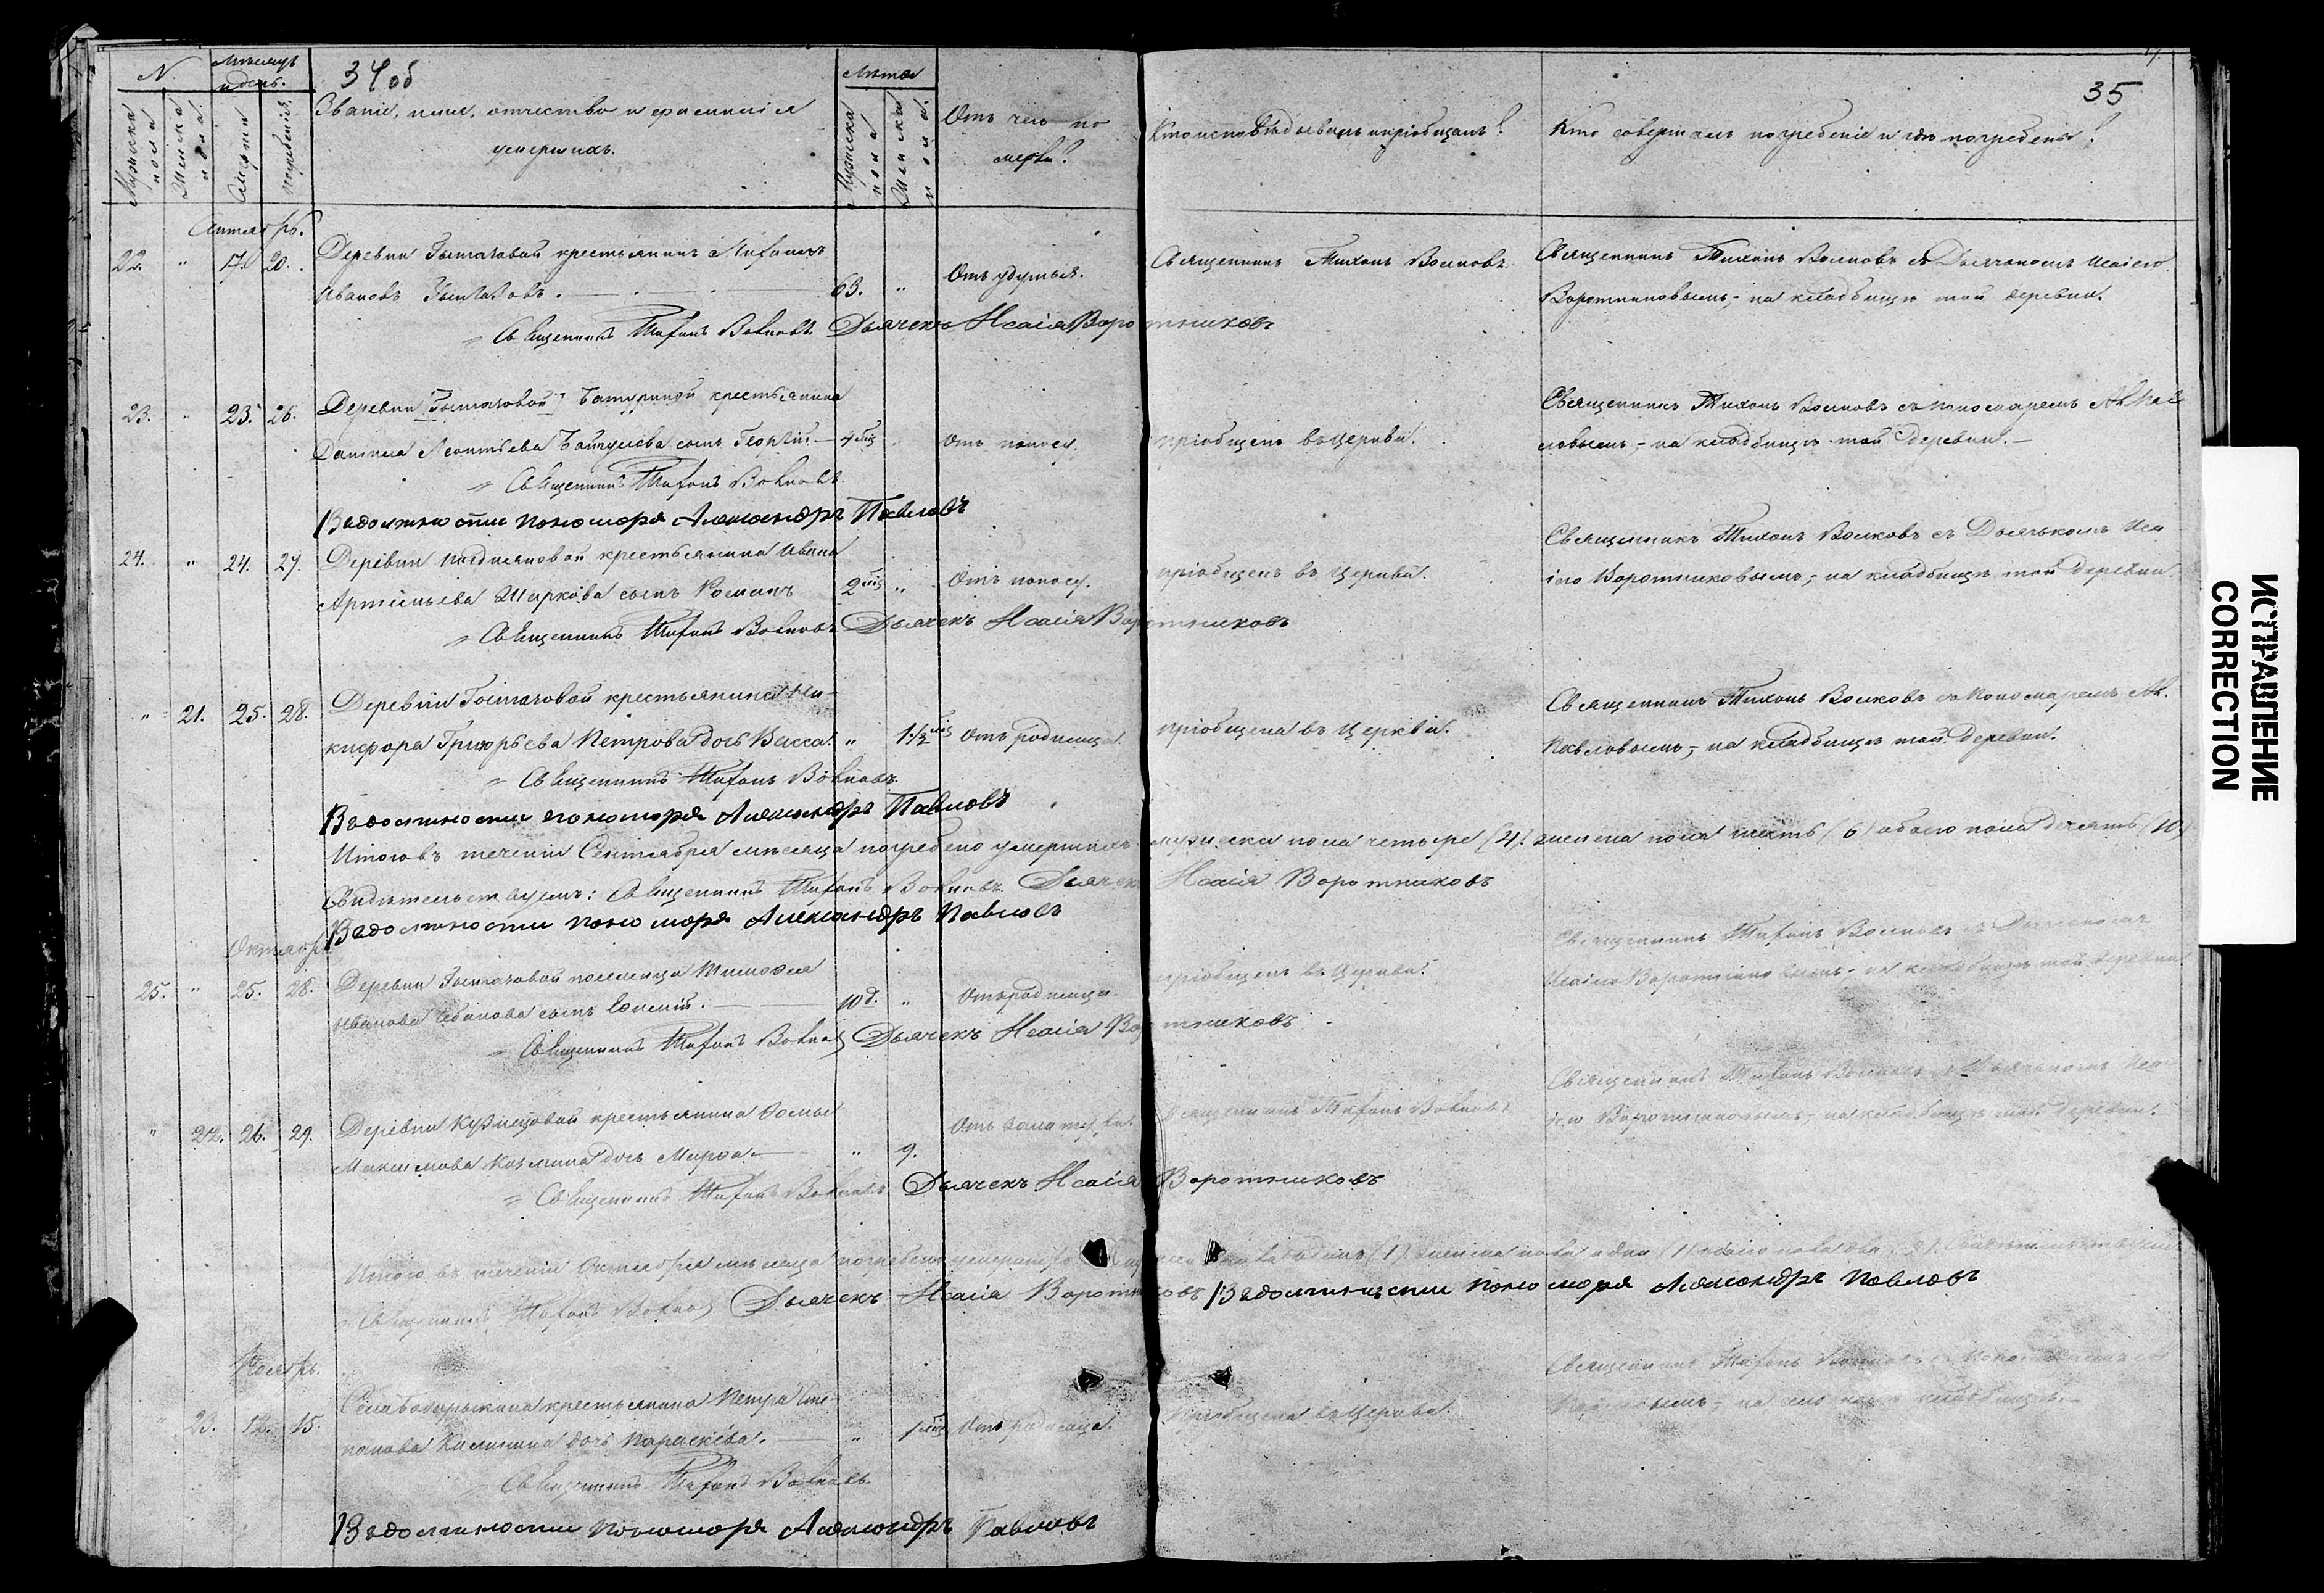 34 об
35
N.
Мѣсяцъ и день.
Мужеска пола
Женска пола.
Смерти
погребенія.
Званіе, имя, отчество и фамилія умершихъ.
Лѣта
Мужеска пола
Женска пола.
Отъ чего померъ?
Кто исповѣдывалъ и пріобщалъ?
Кто совершалъ погребеніе и гдѣ погребены?
22. " 17. 20. Деревни крестьянинъ
Ивановъ 63. " Отъ удушья. Священникъ Тихонъ Волковъ. Священникъ Тихонъ Волковъ съ Дьячкомъ Исаіею
Воротниковымъ, на кладбищѣ той деревни.
Священникъ Тихонъ Волковъ. Дьячекъ Исаія Воротниковъ
23. " 23. 26. Деревни крестьянина
Даніила Леонтьева сынъ Георгій. 4 мѣс Отъ поносу. пріобщенъ въ Церкви. Священникъ Тихонъ Волковъ съ пономаремъ Ал. Павловымъ, на кладбищѣ той деревни.
Священникъ Тихонъ Волковъ.
В должности пономаря Александръ Павловъ
24. " 24. 27. Деревни крестьянина Ивана
Артемьева Маркова сынъ Романъ 2 мѣс " Отъ поносу. пріобщенъ въ Церкви. Священникъ Тихонъ Волковъ съ Дьячькомъ Исаіею Воротниковымъ, на кладбищѣ той деревни.
Священникъ Тихонъ Волковъ Дьячекъ Исаія Воротниковъ
" 21. 25. 28. Деревни крестьянина Никифора Григорьева Петрова дочь Васса. " 1 1/2 мѣс Отъ родимца. пріобщена въ Церкви. Священникъ Тихонъ Волковъ съ Пономаремъ Ал.
Павловымъ, на кладбищѣ той деревни.
Священникъ Тихонъ Волковъ.
В должности пономаря Александръ Павловъ
Итого въ теченіи Сентября мѣсяца погребено умершихъ мужеска пола четыре (4). женска пола шесть (6) обоего пола десять (10)
Свидѣтельствуемъ: Священникъ Тихонъ Волковъ Дьячекъ Исаія Воротниковъ
В должности пономаря Александръ Павловъ
Октябрь
25. " 25. 28. Деревни поселенца Тимофея
Иванова сынъ 10 д. " Отъ родимца. пріобщенъ въ Церкви. Священникъ Тихонъ Волковъ съ Дьячкомъ
Исаіею Воротниковымъ, на кладбищѣ той деревни
Священникъ Тихонъ Волковъ Дьячекъ Исаія Воротниковъ
" 22. 26. 29. Деревни Кузнецовой крестьянина Фомы
Максимова дочь Марфа. " 9. Священникъ Тихонъ Волковъ Священникъ Тихонъ Волковъ съ Дьячькомъ Исаіею Воротниковымъ, на кладбищѣ той деревни.
Священникъ Тихонъ Волковъ Дьячекъ Исаія Воротниковъ
Итого въ теченіи Октября мѣсяца погребено умершихъ одинъ (1) женска пола одна (1) обоего пола два (2). Свидѣтельствуемъ
Священникъ Тихонъ Волковъ Дьячекъ Исаія Воротниковъ В должности пономаря Александръ Павловъ
Ноябрь.
23. 12. 15. Села крестьянина Петра Степанова Калинина дочь Параскева. " 1 мѣс Отъ родимца. Пріобщена въ Церкви. Священникъ Тихонъ Волковъ съ Пономаремъ Ал
Павловымъ, на кладбищѣ.
Священникъ Тихонъ Волковъ.
В должности пономаря Александръ Павловъ
ИСПРАВЛЕНИЕ
CORRECTION